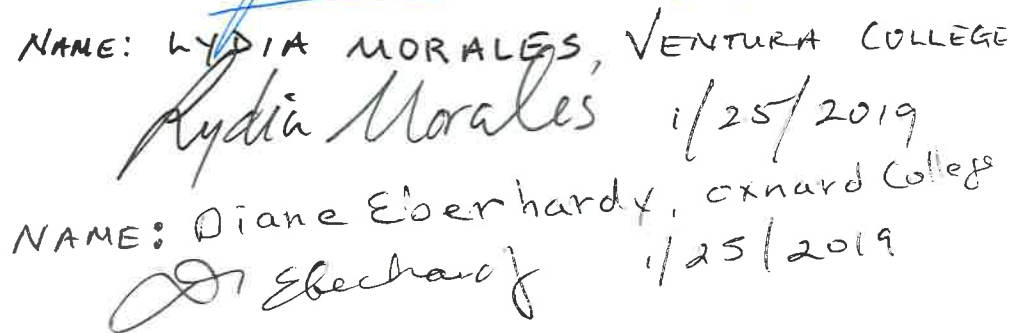 NAME: LYDIA MORALES, VENTURA COLLEGE
Lydia Morales 1/25/2019
NAME: Diane Eberhardy, Oxnard College
D Eberhardy 1/25/2019